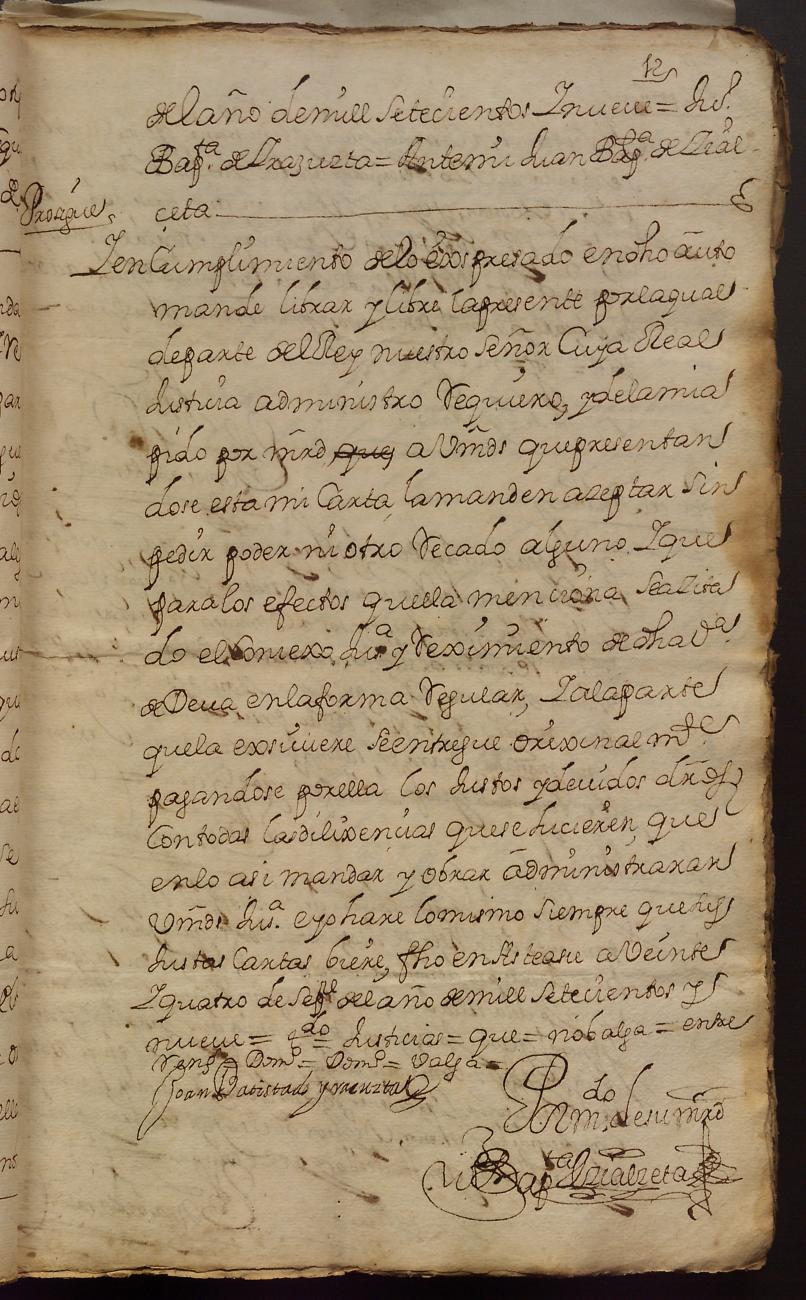 12
del año de mill setecientos I nueue = Jua.
Bapta. de Yrazuzta = Antemi Juan Bapta. de Lizal-
Prosigue ceta
I en Cumplimiento de lo exspresado en dho auto
mande librar y libre lapresente por laqual
departe del Rey nuestro Señor Cuya Real
Justicia administro Requiero, y delamia
pido por mrd que, a Vmds que presentan
dose esta mi Carta, la manden azeptar Sin
pedir poder ni otro Recado alguno I que
para los efectos quella menciona Seazita
do el Conzexo Jusa. y Reximiento de dha Va.
de Deua enlaforma Regular, I alaparte
quela exsiuiere Seentregue orixinalmte
pagandose porella los Justos ydeuidos dros
Contodas lasdilixencias quese hicieren, que
enlo asi mandar y obrar administraran
Vmds Jusa. eyo hare lo mismo Siempre que sus
Justas Cartas biere, fho en Asteasu a Veinte
I quatro de Sepre del año de mill Setecientos y
nueue = edo Justicias = que = nobalga = entre
Rengs = Domo = Domo = Valga =
Joan Batista de yrazuzta
Por mdo de su mrd
Ju Bapta Lizalzeta